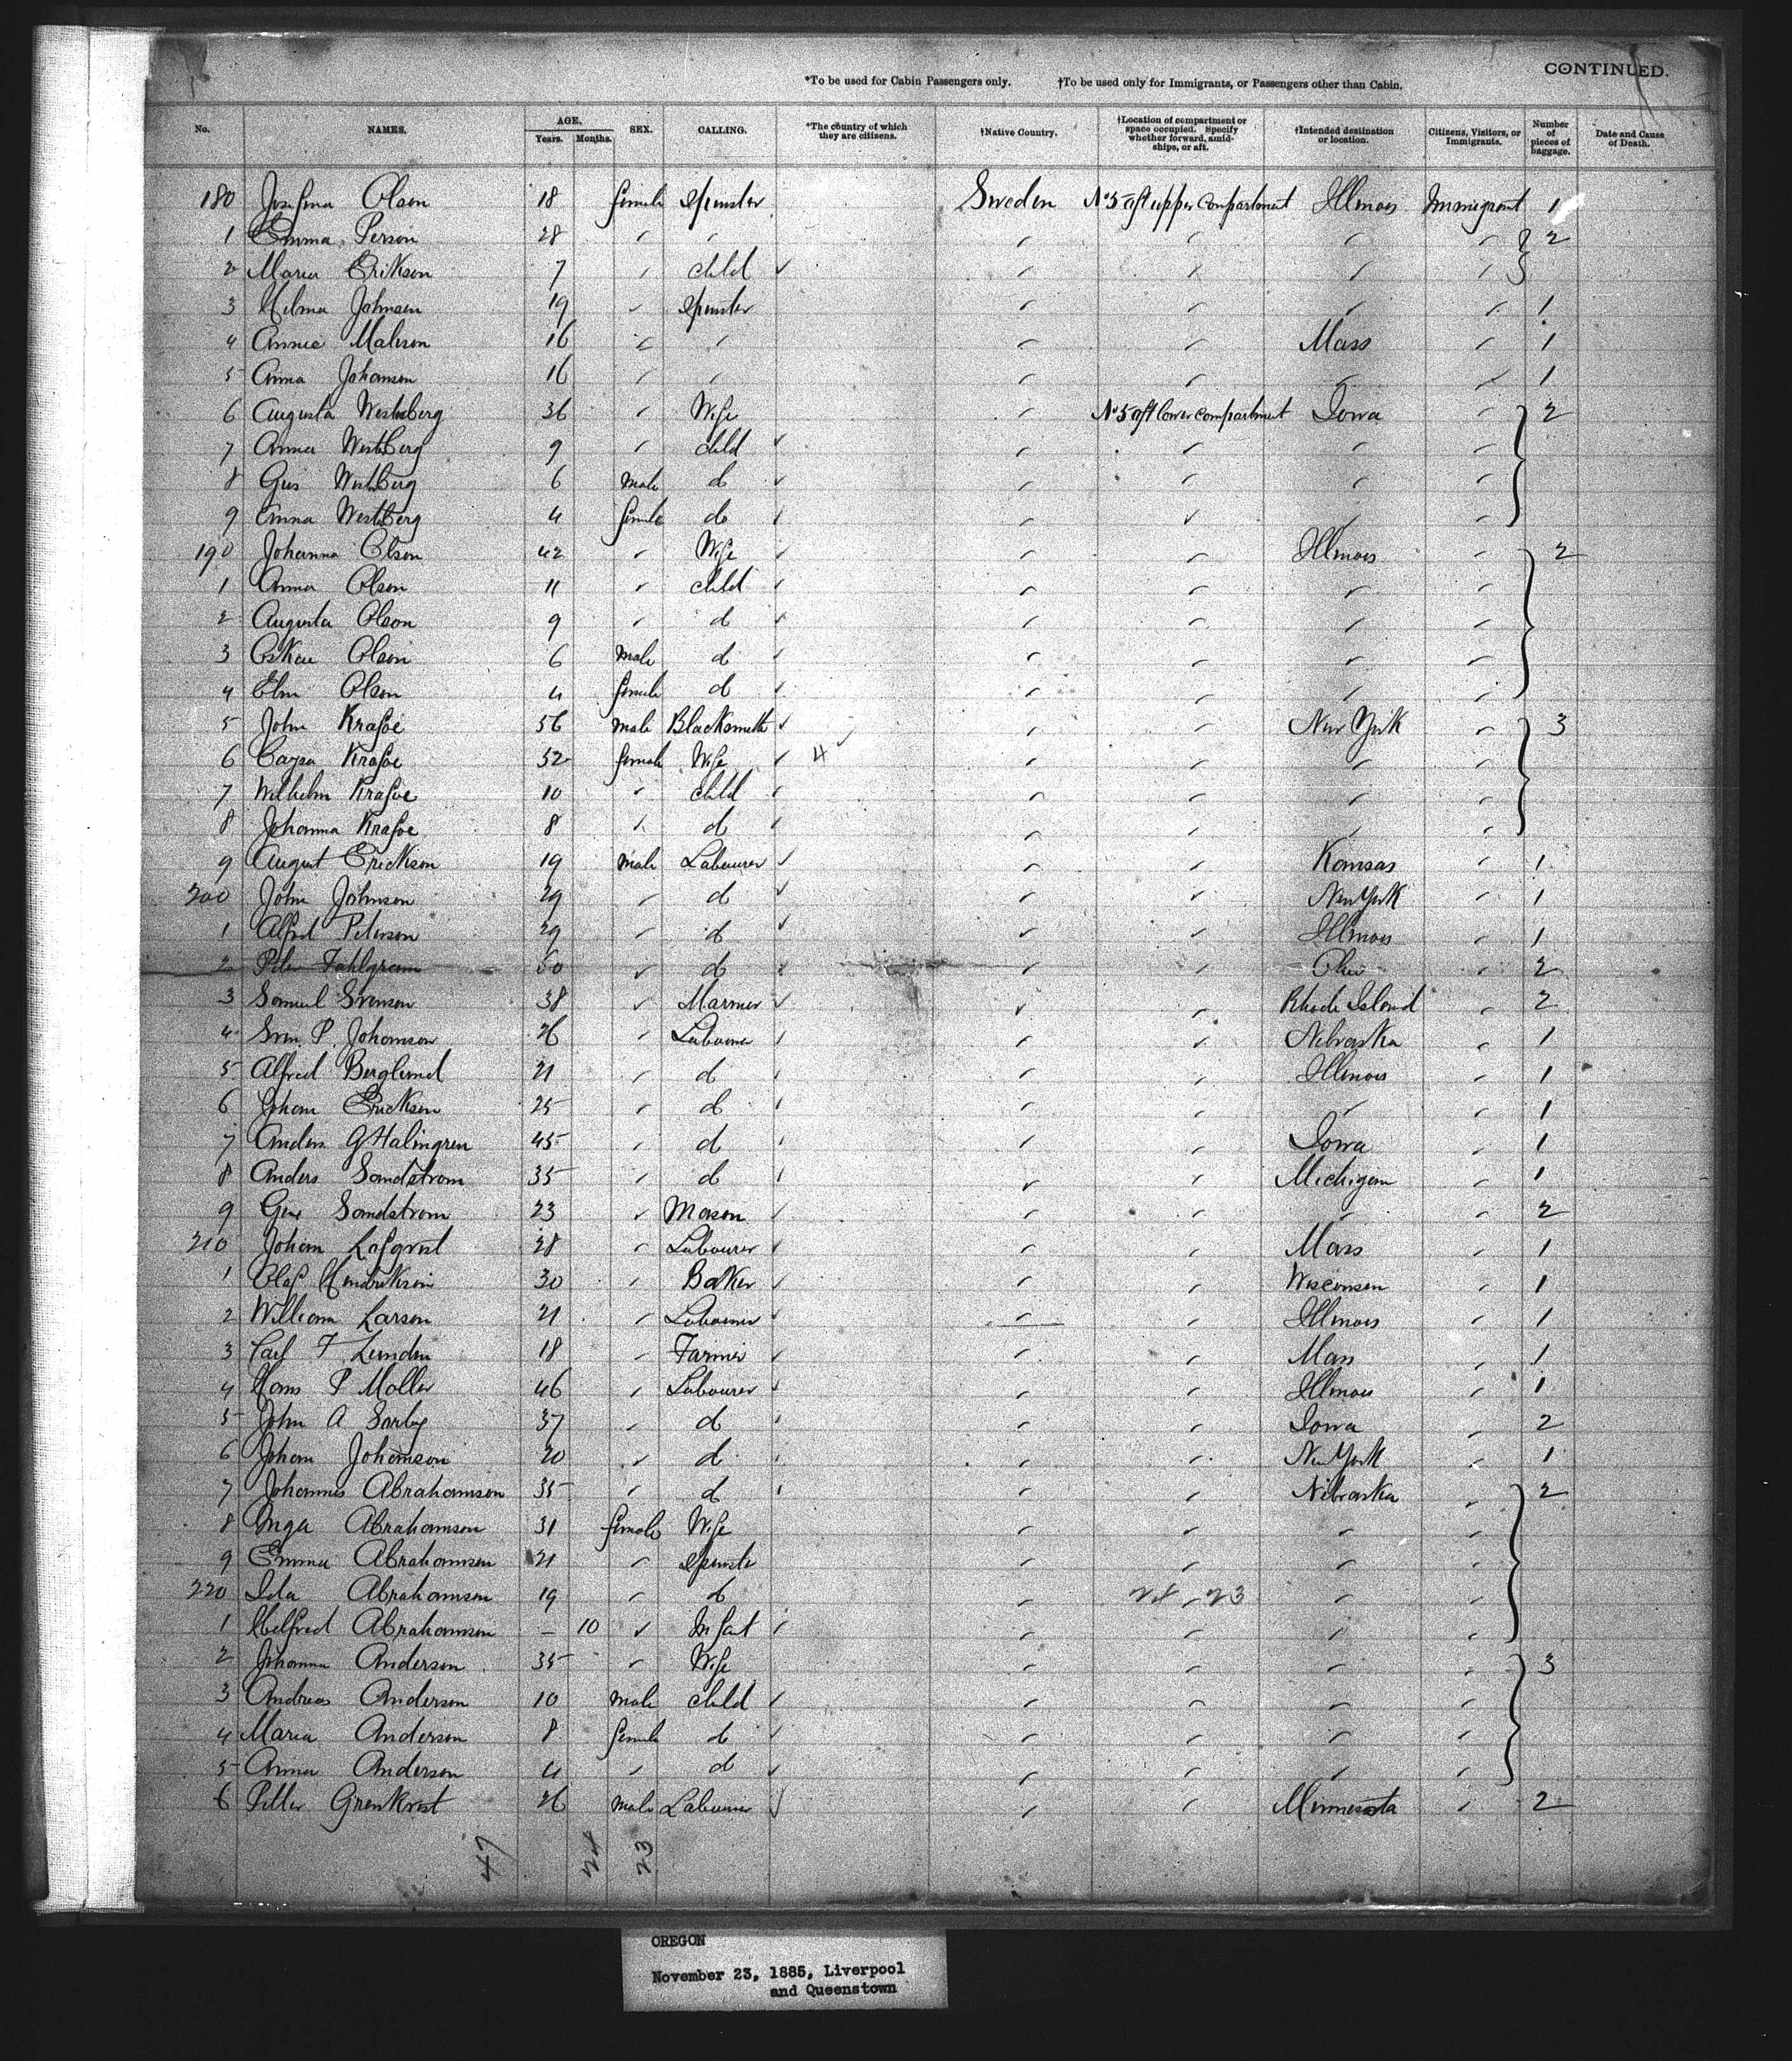 CONTINUED.
*To be used for Cabin Passengers only. †To be used only for Immigrants, or Passengers other than Cabin.
No. NAMES. AGE. Years. Months. SEX. CALLING. *The country of which they are citizens. †Native Country. †Location of compartment or space occupied. Specify whether forward, amidships, or aft. †Intended destination or location. Citizens, Visitors, or Immigrants. Number of pieces of baggage. Date and Cause of Death.
180 Josefina Olson 18 female Spinster Sweden No 5 aft upper compartment Illinois Immigrant 1
1 Emma Person 28 " " " " " " 2
2 Maria Erikson 7 " child " " " "
3 Hilma Johnson 19 " Spinster " " " " 1
4 Annie Matsson 16 " " " " Mass " 1
5 Anna Johanson 16 " " " " " " 1
6 Augusta Westberg 36 " Wife " No 5 aft lower compartment Iowa " 2
7 Anna Westberg 9 " child " " " "
8 Gus Westberg 6 male do " " " "
9 Emma Westberg 4 female do " " " "
190 Johanna Olson 42 " Wife " " Illinois " 2
1 Anna Olson 11 " child " " " "
2 Augusta Olson 9 " do " " " "
3 Oskar Olson 6 male do " " " "
4 Elin Olson 4 female do " " " "
5 John Krafve 56 male Blacksmith " " New York " 3
6 Caysa Krafve 52 female Wife 4 " " " "
7 Wilhelm Krafve 10 " child " " " "
8 Johanna Krafve 8 " do " " " "
9 August Erickson 19 male Labourer " " Kansas " 1
200 John Johnson 29 " do " " New York " 1
1 Alfred Peterson 29 " do " " Illinois " 1
2 Peter Fahlgren 60 " do " " Ohio " 2
3 Samuel Svenson 38 " Mariner " " Rhode Island " 2
4 Sven P. Johanson 26 " Labourer " " Nebraska " 1
5 Alfred Berglund 21 " do " " Illinois " 1
6 Johan Erickson 25 " do " " " " 1
7 Anders G Halingren 45 " do " " Iowa " 1
8 Anders Sandstrom 35 " do " " Michigan " 1
9 Gus Sandstrom 23 " Mason " " " " 2
210 Johan Lafqvist 28 " Labourer " " Mass " 1
1 Olaf Hendrikson 30 " Baker " " Wisconsin " 1
2 William Larson 21 " Labourer " " Illinois " 1
3 Carl F Lundin 18 " Farmer " " Mass " 1
4 Hans P Moller 46 " Labourer " " Illinois " 1
5 John A Sarby 37 " do " " Iowa " 2
6 Johan Johanson 20 " do " " New York " 1
7 Johannes Abrahamson 35 " do " " Nebraska " 2
8 Inga Abrahamson 31 female Wife " " " "
9 Emma Abrahamson 21 " Spinster " " " "
220 Ida Abrahamson 19 " do " 24 " 23 " "
1 Helfred Abrahamson – 10 " Infant " " " "
2 Johanna Anderson 35 " Wife " " " " 3
3 Andreas Anderson 10 male child " " " "
4 Maria Anderson 8 female do " " " "
5 Anna Anderson 4 " do " " " "
6 Petter Grenkvist 26 male Labourer " " Minnesota " 2
47 24 23
OREGON
November 23, 1885, Liverpool
and Queenstown